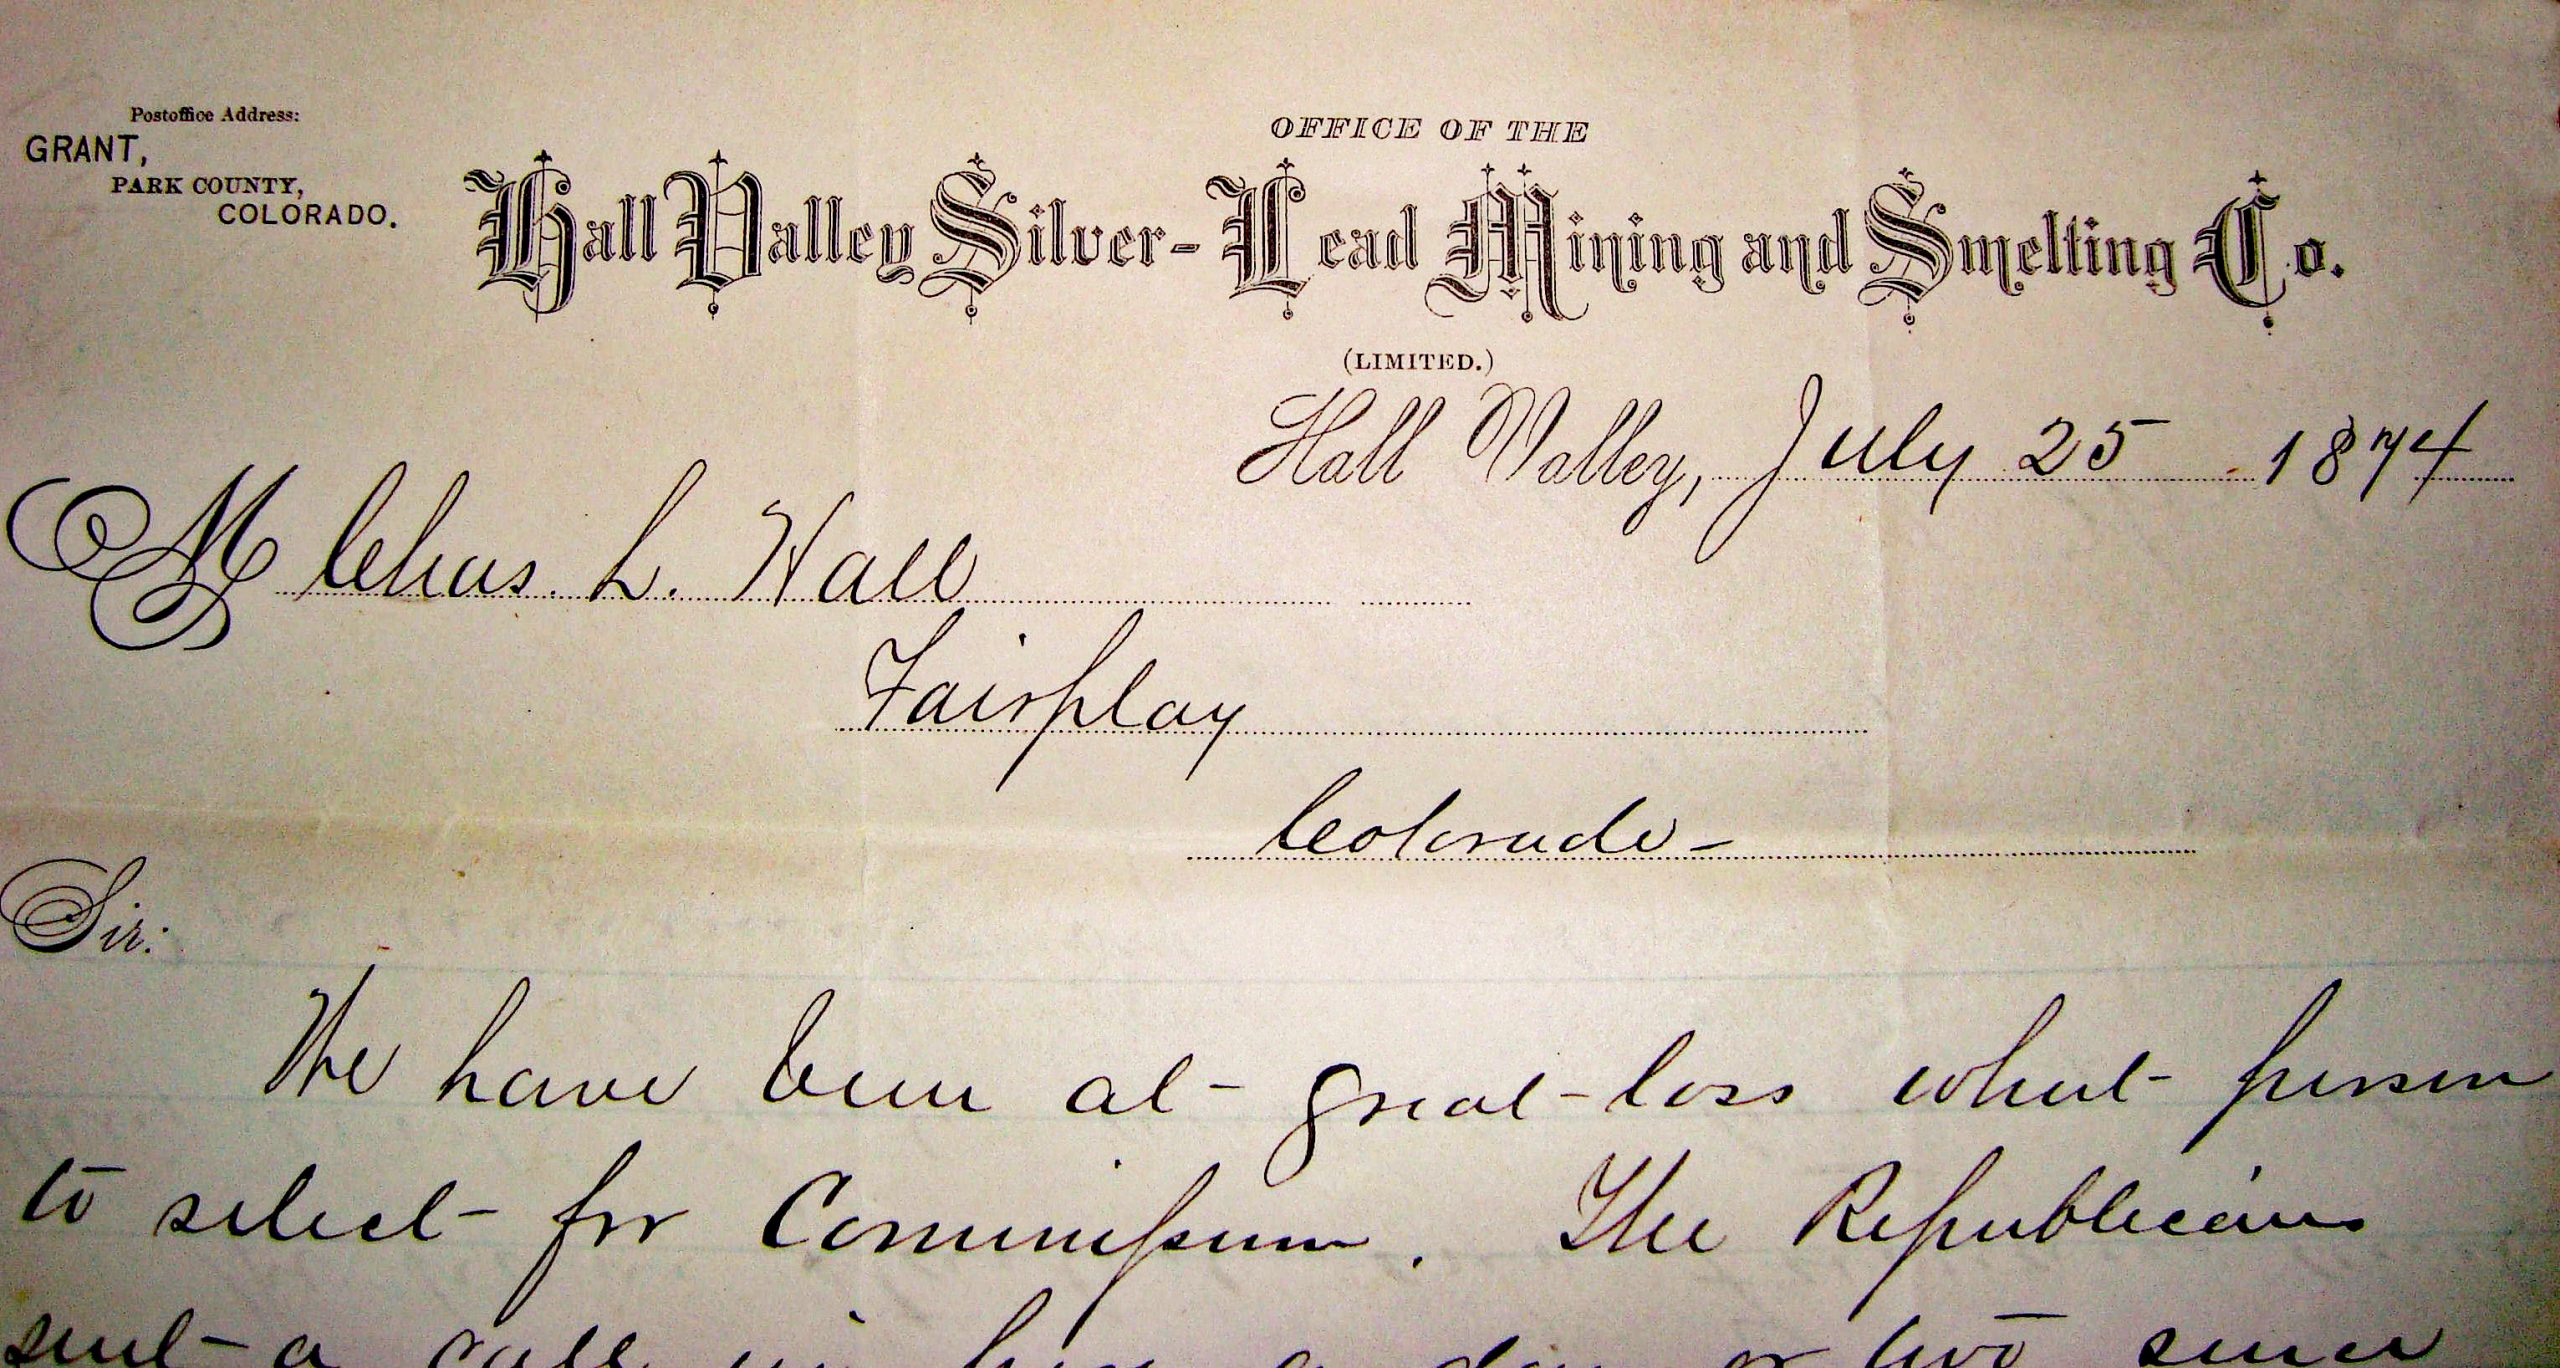 Postoffice Address:
GRANT,
PARK COUNTY,
COLORADO.
OFFICE OF THE
Hall Valley Silver-Lead Mining and Smelting Co.
(LIMITED.)
Hall Valley, July 25 1874
M Chas. L. Hall
Fairplay
Colorado -
Sir:
We have been at great loss what person
to select for Commissioner. The Republicans
sent a call in here a day or two since